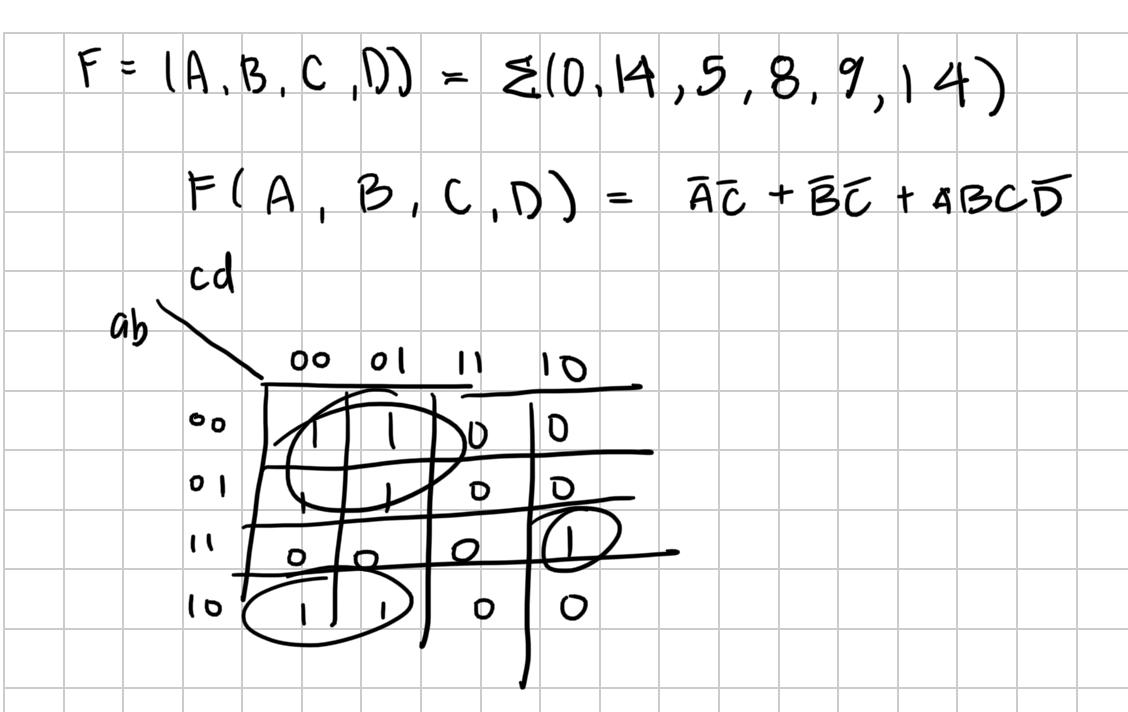 F = (A, B, C, D)) = Σ(0, 14, 5, 8, 9, 14)
F(A, B, C, D) = A̅C̅ + B̅C̅ + ABCD̅
cd
ab
00 01 11 10
00 1 1 0 0
01 1 1 0 0
11 0 0 0 1
10 1 1 0 0